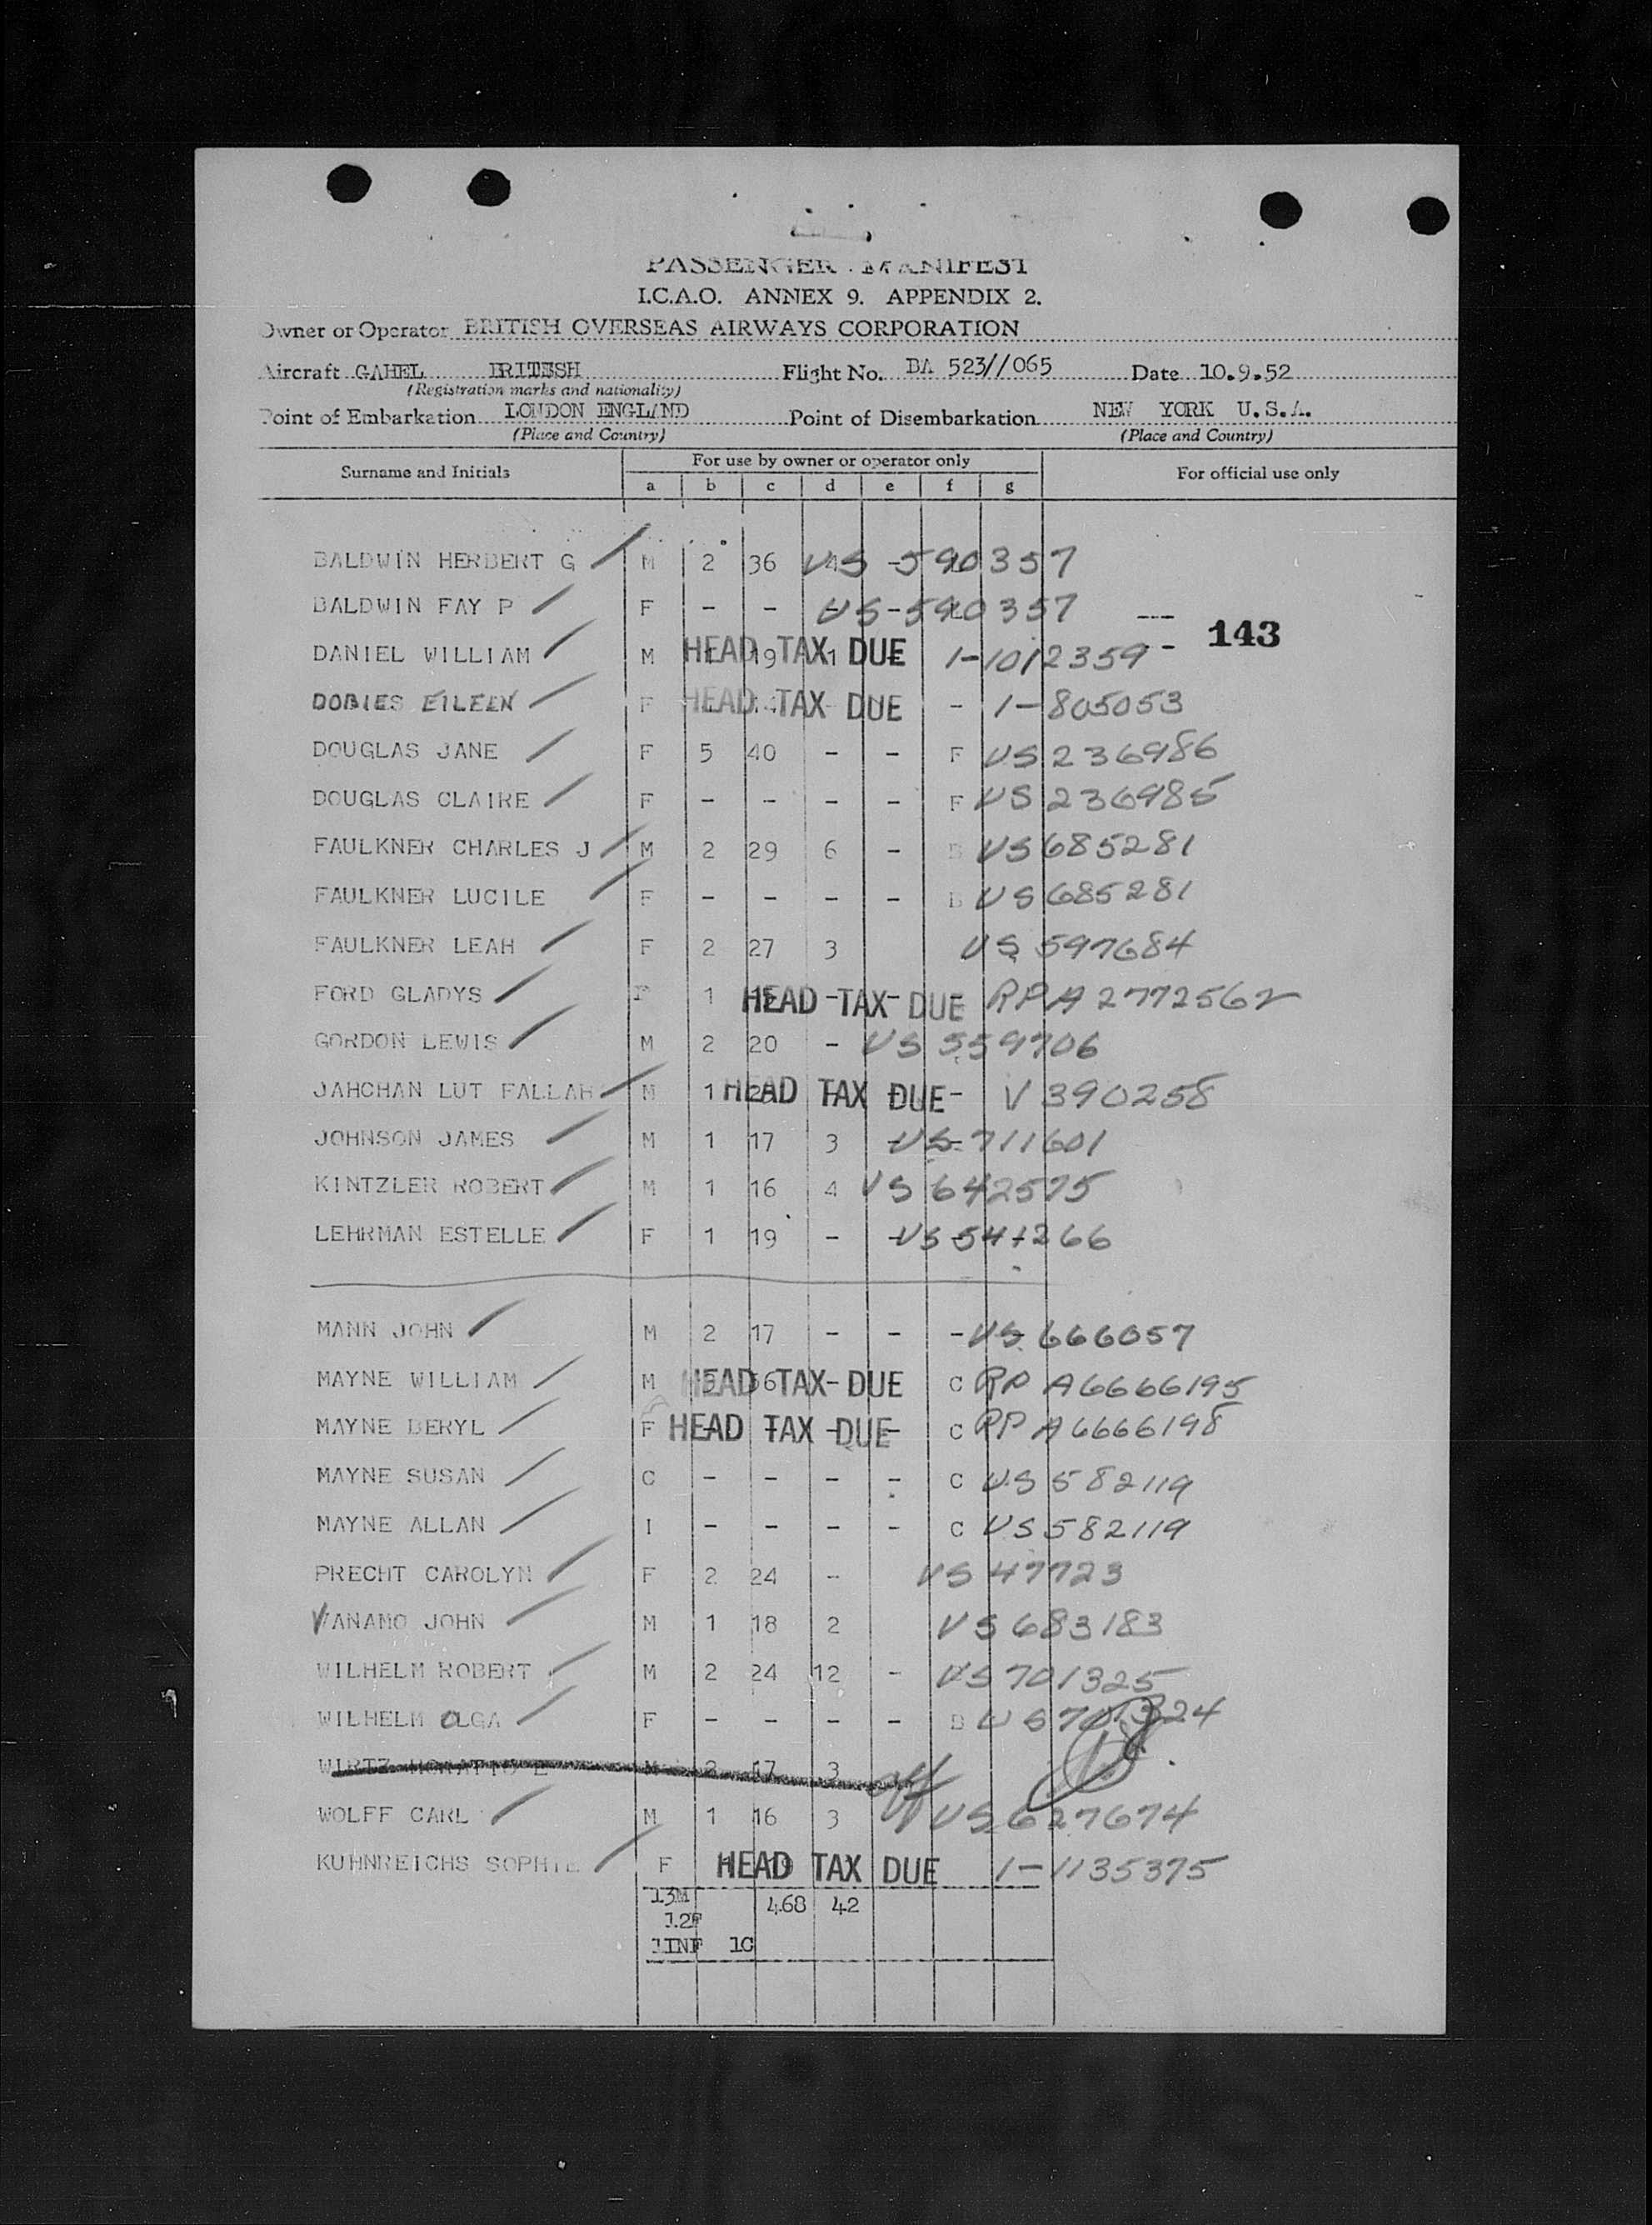 PASSENGER MANIFEST
I.C.A.O. ANNEX 9. APPENDIX 2.
Owner or Operator BRITISH OVERSEAS AIRWAYS CORPORATION
Aircraft GAHEL BRITISH Flight No. BA 523//065 Date 10.9.52
(Registration marks and nationality)
Point of Embarkation LONDON ENGLAND Point of Disembarkation NEW YORK U.S.A.
(Place and Country) (Place and Country)
Surname and Initials For use by owner or operator only For official use only
a b c d e f g
BALDWIN HERBERT G M 2 36 US - 590357
BALDWIN FAY P F - - US-590357
143
DANIEL WILLIAM M HEAD TAX DUE 19 1 1-1012359 -
DOBIES EILEEN F HEAD TAX DUE - 1-805053
DOUGLAS JANE F 5 40 - - F US 236986
DOUGLAS CLAIRE F - - - - F US 236985
FAULKNER CHARLES J M 2 29 6 - B US 685281
FAULKNER LUCILE F - - - - B US 685281
FAULKNER LEAH F 2 27 3 US 597684
FORD GLADYS F 1 HEAD TAX DUE RP A 2772562
GORDON LEWIS M 2 20 - US 559706
JAHCHAN LUT FALLAH M 1 HEAD TAX DUE - V 390258
JOHNSON JAMES M 1 17 3 US 711601
KINTZLER ROBERT M 1 16 4 US 642575
LEHRMAN ESTELLE F 1 19 - US 541266
MANN JOHN M 2 17 - - - US 666057
MAYNE WILLIAM M HEAD TAX DUE C RP A6666195
MAYNE BERYL F HEAD TAX DUE C RP A6666198
MAYNE SUSAN C - - - - C US 582119
MAYNE ALLAN I - - - - C US 582119
PRECHT CAROLYN F 2 24 - US 47723
VANAMO JOHN M 1 18 2 US 683183
WILHELM ROBERT M 2 24 12 - US 701325
WILHELM OLGA F - - - - B US 701324
WIRTZ M 2 17 3 off
WOLFF CARL M 1 16 3 US 627674
KUHNREICHS SOPHIE F HEAD TAX DUE 1-1135375
13M 468 42
12F
1INF 1C